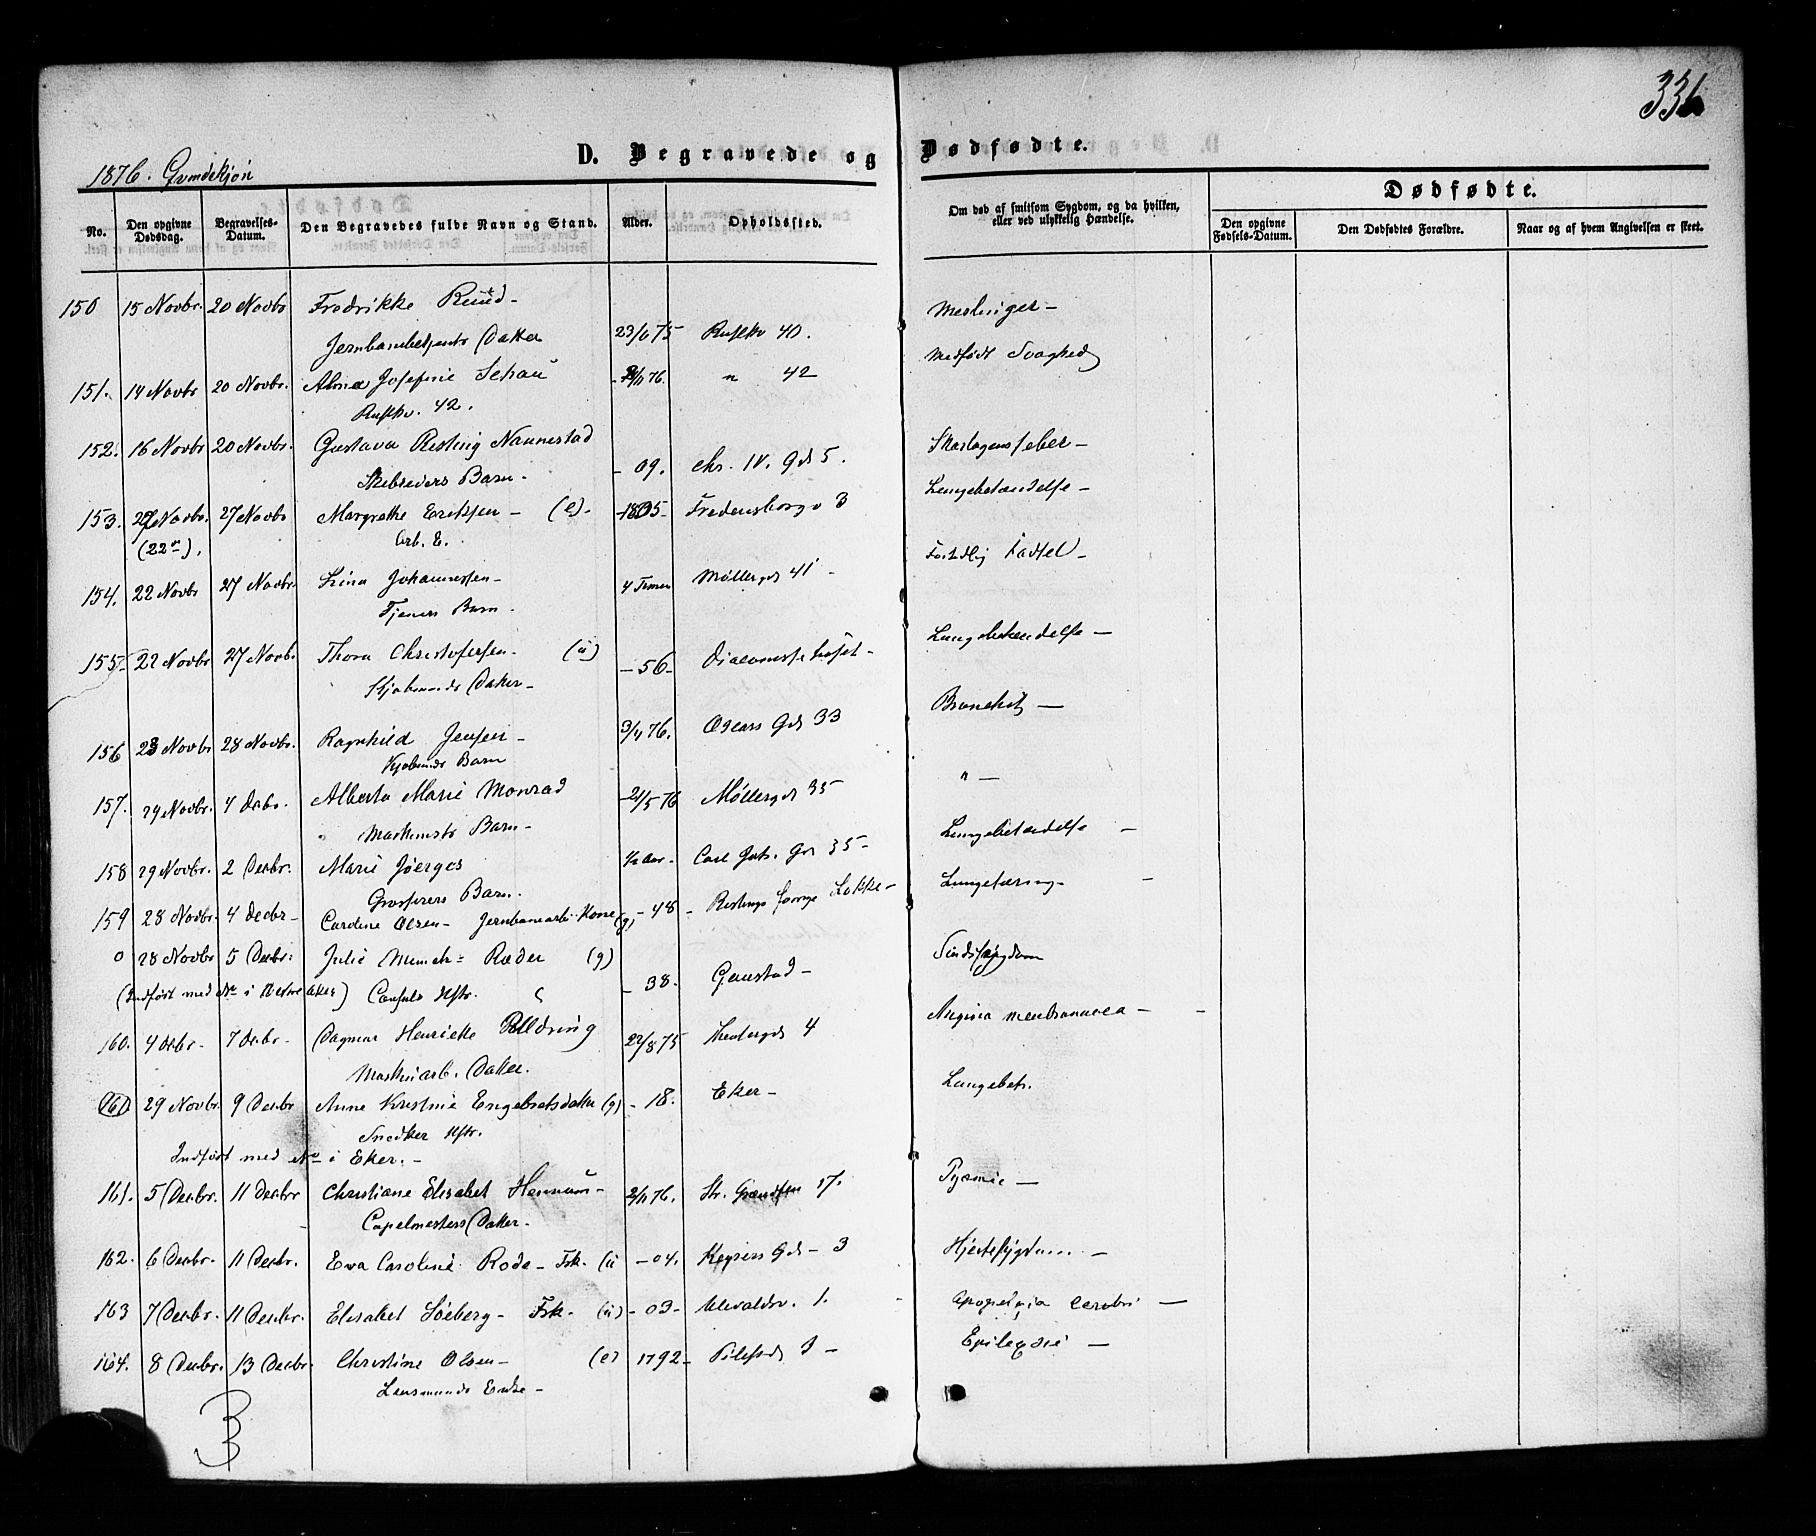 336
D. Begravede og Dødfødte.
1876. Qvindekjøn
No. Den opgivne Dødsdag. Begravelses-Datum. Den Begravedes fulde Navn og Stand. Alder. Opholdssted. Om død af smitsom Sygdom, og da hvilken, eller ved ulykkelig Hændelse. Dødfødte.
Den opgivne Fødsels-Datum. Den Dødfødtes Forældre. Naar og af hvem Angivelsen er skeet.
150 15 Novbr. 20 Novbr Fredrikke Ruud - Meslinger -
Datter 23/6 75 Rusløkv 40.
151. 14 Novbr 20 Novbr. Alma Josefine Schau 76. " 42 Medfødt Svaghed
Rusløkv. 42.
152. 16 Novbr 20 Novbr. Gustava Resting Nannestad Skarlagensfeber -
Barn - - 09. Chr. IV. Gd 5.
153. Novbr. 27 Novbr Margrethe Eriksen - (e). - 1805 - Fredensborgv 3 Lungebetændelse -
(22de). Arb. E.
154. 22 Novbr 27 Novbr. Lina Johannessen - 4 Timer Møllergd 41 - Fødsel -
Tjeners Barn.
155 - 22 Novbr 27 Novbr. Thora Christofersen - (u) - 56 - Diaconissehuset - Lungebetændelse -
Datter -
156 23 Novbr 28 Novbr. Ragnhild Jensen - 3/11 76. Oscars Gd 33 Bronchit -
Barn
157. 29 Novbr. 4 Debr. Alberta Marie Monrad - 21/5 76 Møllergd 35 " -
Maskinstr Barn -
158 29 Novbr. 2 Decbr. Marie Jøerges ½ Aar - Carl Joh. Gd 35 - Lungebetændelse -
Grosserers Barn.
159 28 Novbr. 4 Decbr - Caroline Olsen - Jernbanearb. Kone (g) - 48 - Løkke - Lungetæring -
0 28 Novbr 5 Decbr. Julie Munch - Ræder (g) Sindssygdom
(Indført med No i Vestre Aker) Consuls Hstr. - 38. Gaustad -
160. 4 Decbr - 7 Decbr - Dagmar Henriette Alldring 22/8 75 4 Angina membranacea -
Maskinarb. Datter.
(161) 29 Novbr. 9 Decbr Anne Kristine Engebretsdatter (g) - 18. Eker - Lungebet.
Snedker Hstr.
Indført med No i Eker. -
161. 5 Decbr. 11 Decbr Christiane Elisabet Hennum - 2/11 76. Str. Grændsen 17. Pyæmie -
Capelmesters Datter.
162. 6 Decbr. 11 Decbr. Eva Caroline Rode - Frk. (u - 04. Keysers Gd - 3 Hjertesygdom -
163 7 Decbr. 11 Decbr. Elisabet Søeberg - Frk. (u) - 03 - Ulevoldsv. 1. Apoplexia cerebri -
164. 8 Decbr. 13 Decbr. Christine Olsen - (e) 1792 - Epilepsie -
Lensmands Enke -
3